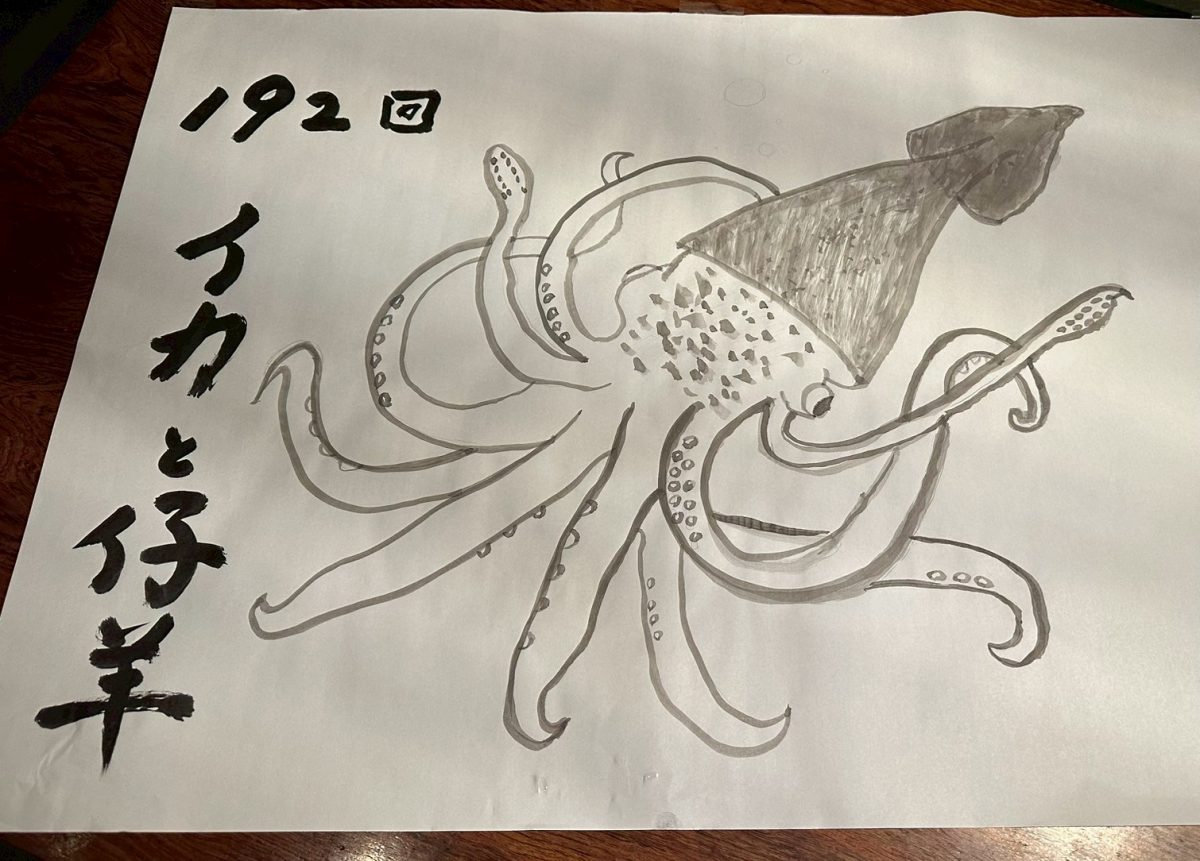 192回
イカと仔羊